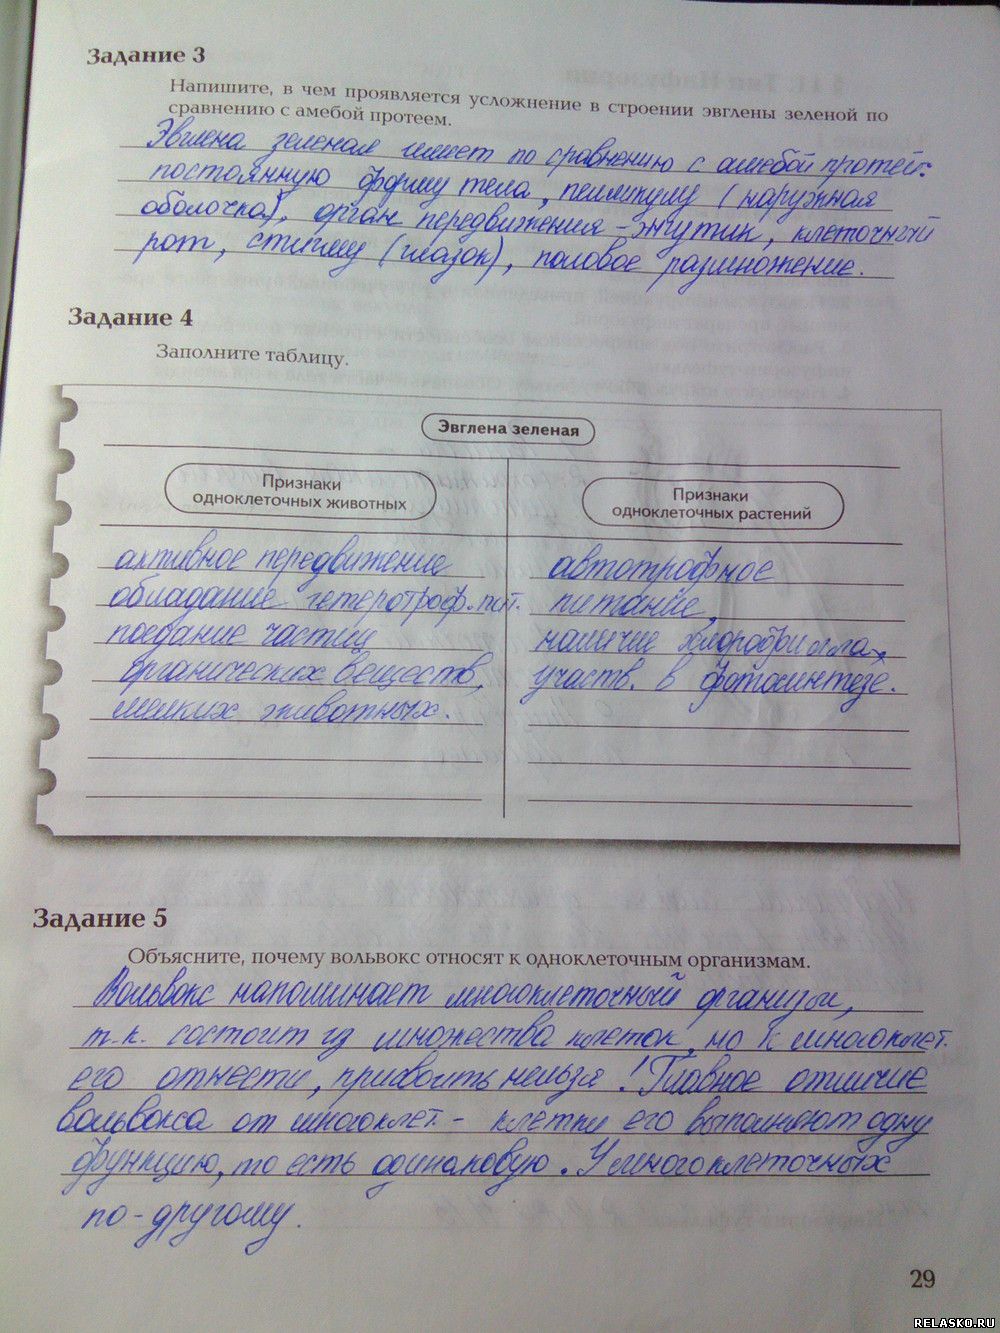 Задание 3
Напишите, в чем проявляется усложнение в строении эвглены зеленой по
сравнению с амебой протеем.
Эвглена зеленая имеет по сравнению с амебой протей:
постоянную форму тела, пелликулу (наружная
оболочка), орган передвижения - жгутик, клеточный
рот, стигму (глазок), половое размножение.
Задание 4
Заполните таблицу.
Эвглена зеленая
Признаки
одноклеточных животных
активное передвижение
обладание гетеротроф. пит.
поедание частиц
органических веществ,
мелких животных.
Признаки
одноклеточных растений
автотрофное
питание,
наличие хлорофилла,
участв. в фотосинтезе.
Задание 5
Объясните, почему вольвокс относят к одноклеточным организмам.
Вольвокс напоминает многоклеточный организм,
т.к. состоит из множества клеток, но к многоклет.
его отнести, присвоить нельзя! Главное отличие
вольвокса от многоклет. - клетки его выполняют одну
функцию, то есть одинаковую. У многоклеточных
по-другому.
29
RELASKO.RU